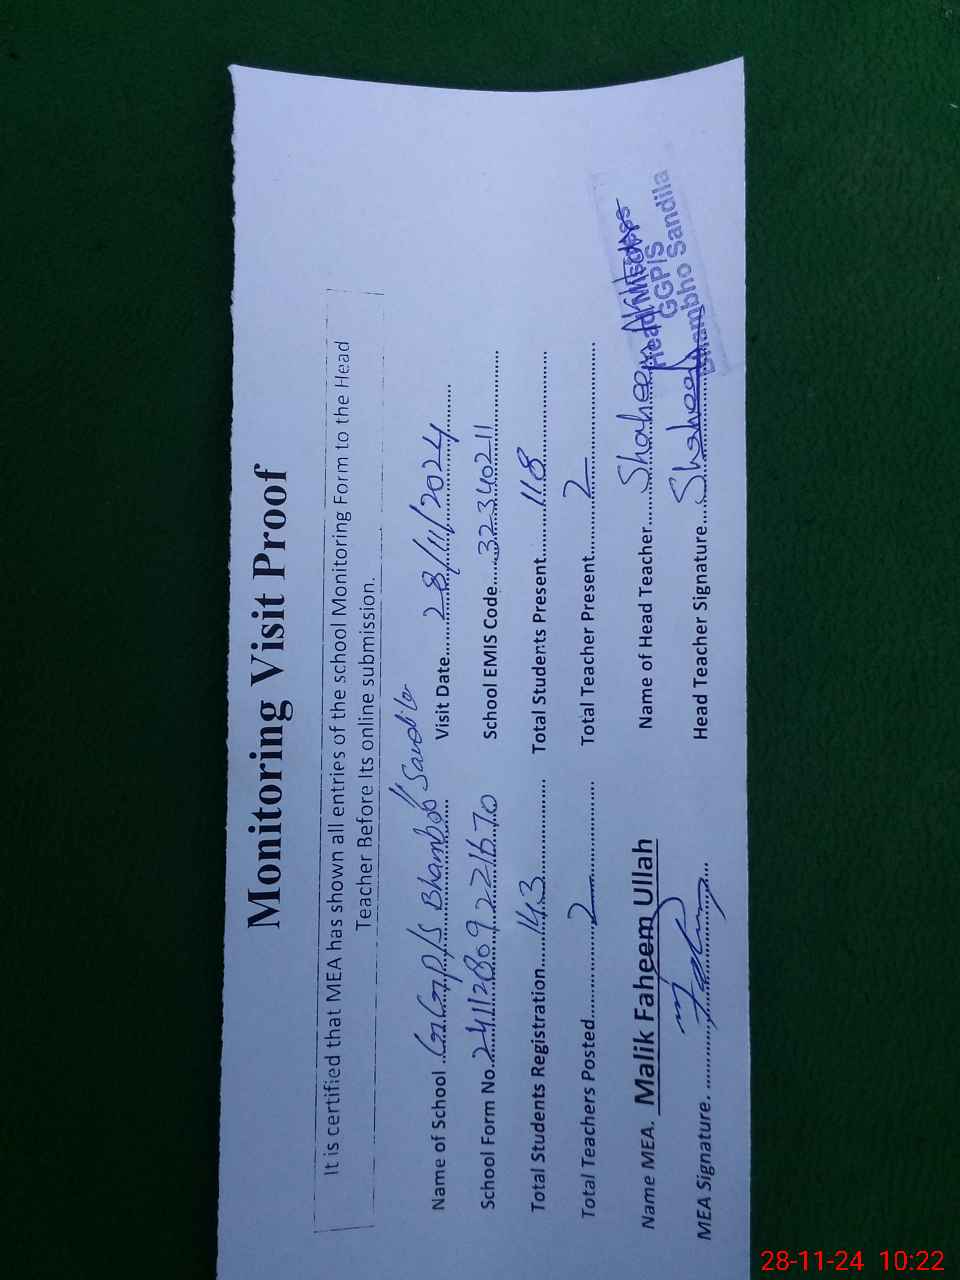 Monitoring Visit Proof
It is certified that MEA has shown all entries of the school Monitoring Form to the Head
Teacher Before Its online submission.
Name of School ..G.G.P/S Bhambo Sandila Visit Date.....28/11/2024.....
School Form No..241128092216 70 School EMIS Code.....32340211.....
Total Students Registration.....143..... Total Students Present.....118.....
Total Teachers Posted.....2..... Total Teacher Present.....2.....
Name MEA. Malik Faheem Ullah Name of Head Teacher....Shaheen
MEA Signature. ..... Head Teacher Signature....Shaheen
Head Mistress
GGP/S
Bhambho Sandila
28-11-24 10:22